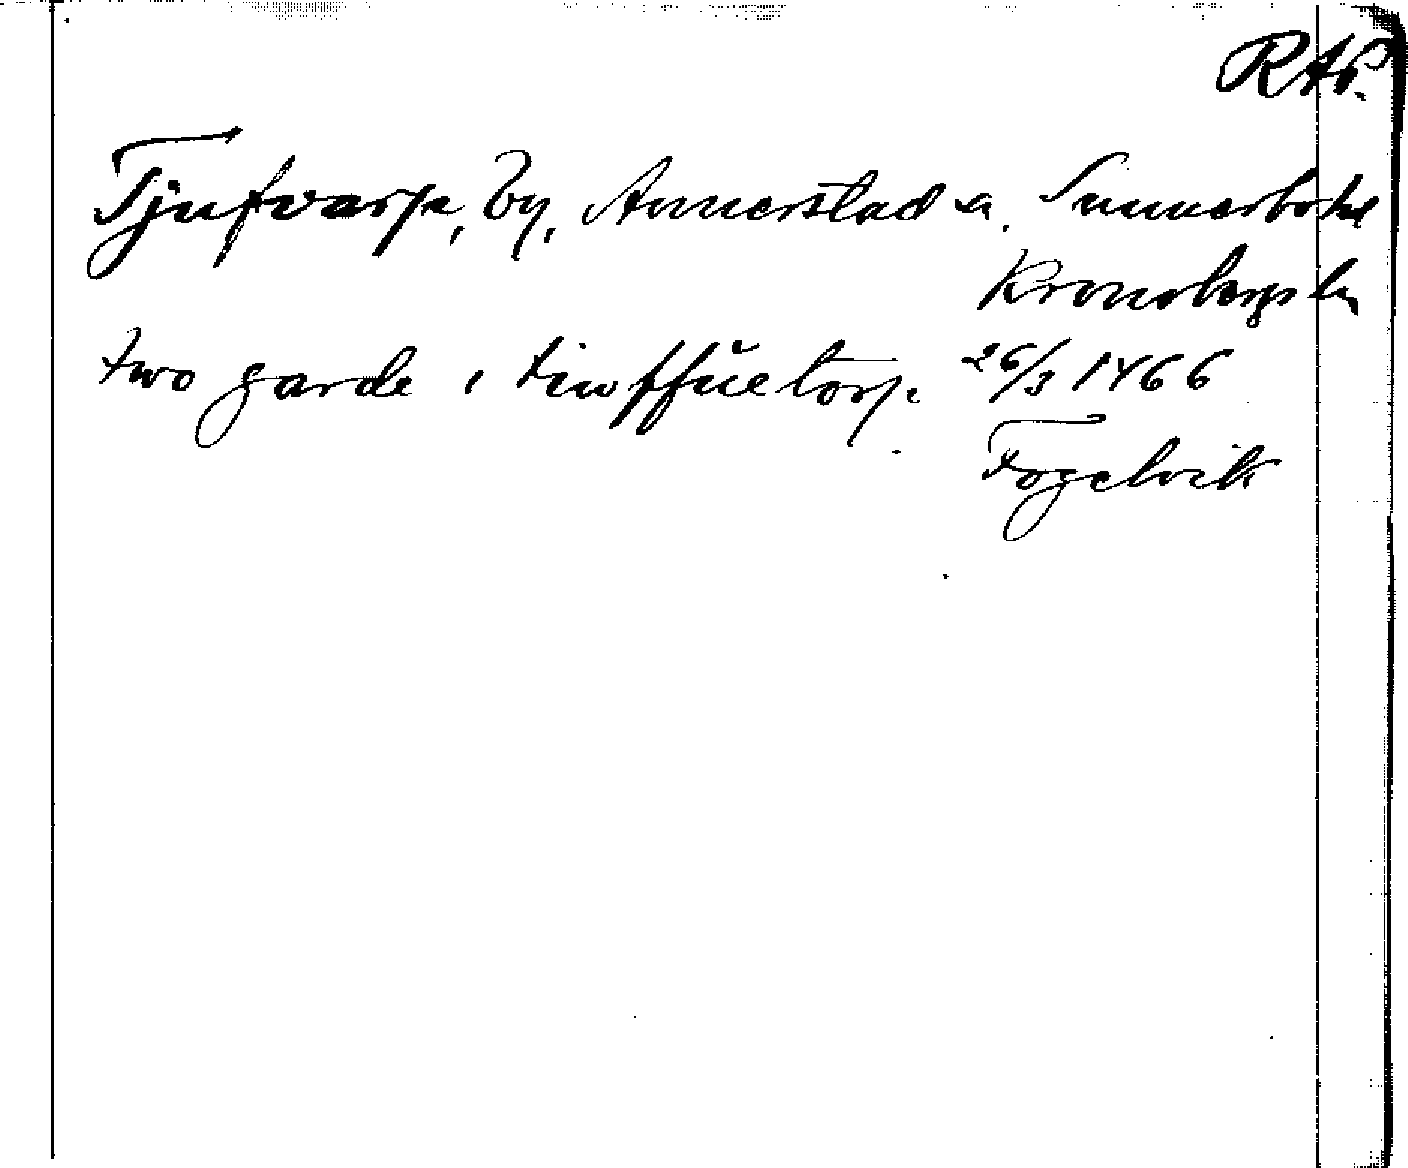 RAp.
Tjufvarp, by, Annerstad s. Sunnerbo hd
Kronobergs län
two garde i tiwffŭetorp. 26/3 1466
Fogelvik